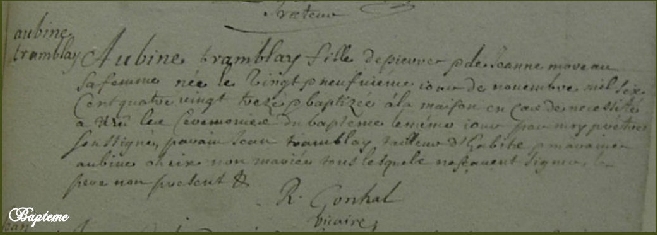 aubine
tramblay
Aubine tramblay fille de pierre & de Jeanne moreau
sa femme née le Vingt neufvieme iour de novembre mil six
Cent quatre vingt treze & baptizée à la maison en Cas de necessité
a les Ceremonies du baptême le même iour par moy prêtre
soussigné, parain Jean tramblay, tailleur d'habits, maraine
aubine non mariée tous lesquels ne sçavent signer, le
pere non present &
R. Gonhal
Vicaire
Bapteme